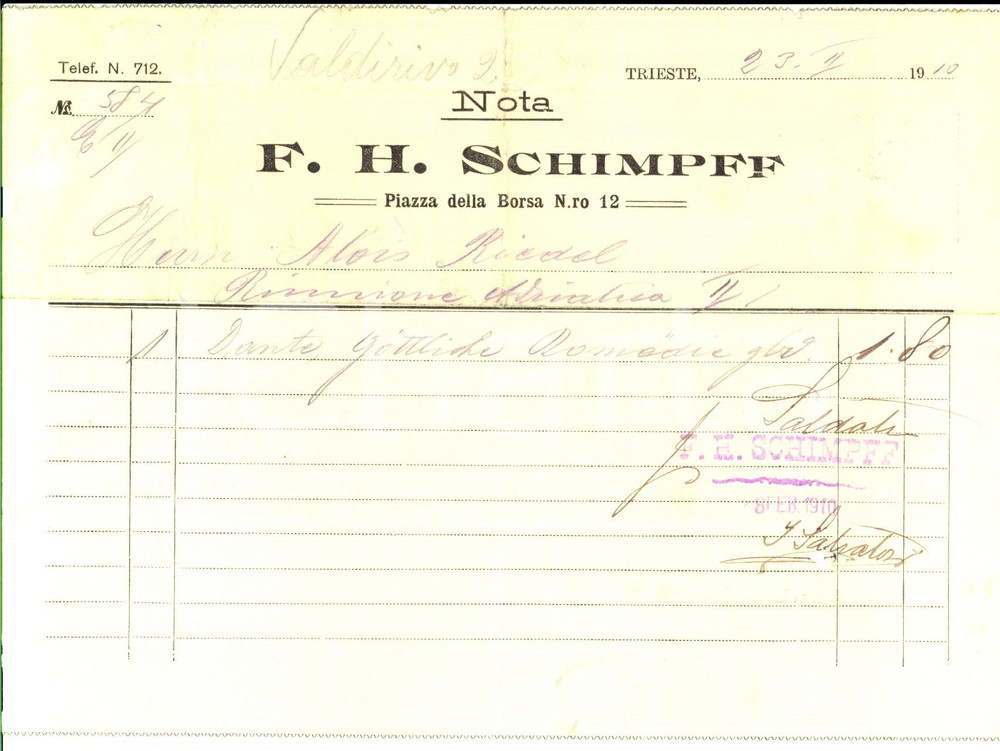 Telef. N. 712.
Valdirivo 9.
TRIESTE, 23. II 1910
No. 584
Nota
F. H. SCHIMPFF
Piazza della Borsa N.ro 12
Herrn Alois Riedel
Riunione Adriatica II
1 Dante Göttliche Komödie gbd. 1.80
Saldato
F. H. SCHIMPFF
8 FEB. 1910